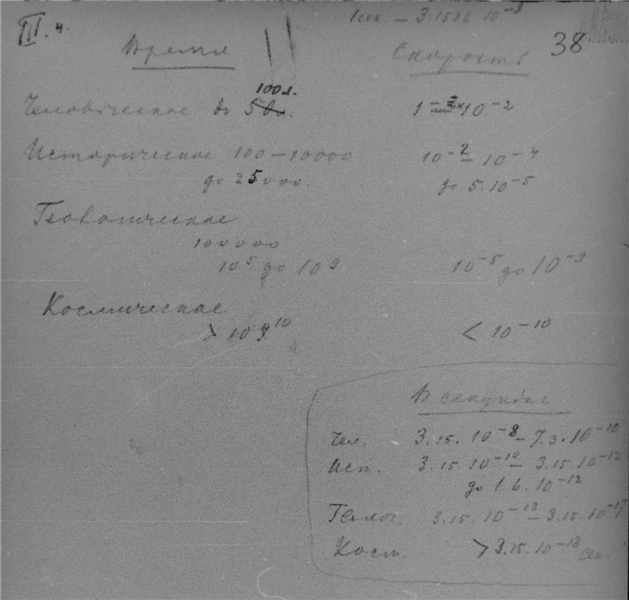 III.ч.
1сек. — 3.1536 10⁻⁸
38
Время Скорость
100 л.
Человѣческое до 50 л. 1 — 10⁻²
Историческое 100 — 10000 10⁻² — 10⁻⁴
до 25000. до 5.10⁻⁵
Геологическое
100000
10⁵ до 10⁹ 10⁻⁵ до 10⁻⁹
Космическое
> 10¹⁰ < 10⁻¹⁰
В секундах
Чел. 3.15. 10⁻⁸ — 7.3.10⁻¹⁰
Ист. 3.15.10⁻¹⁰ — 3.15.10⁻¹²
до 1.6.10⁻¹²
Геолог. 3.15.10⁻¹³ — 3.15.10⁻¹⁷
Косм. > 3.15.10⁻¹⁸ сек.